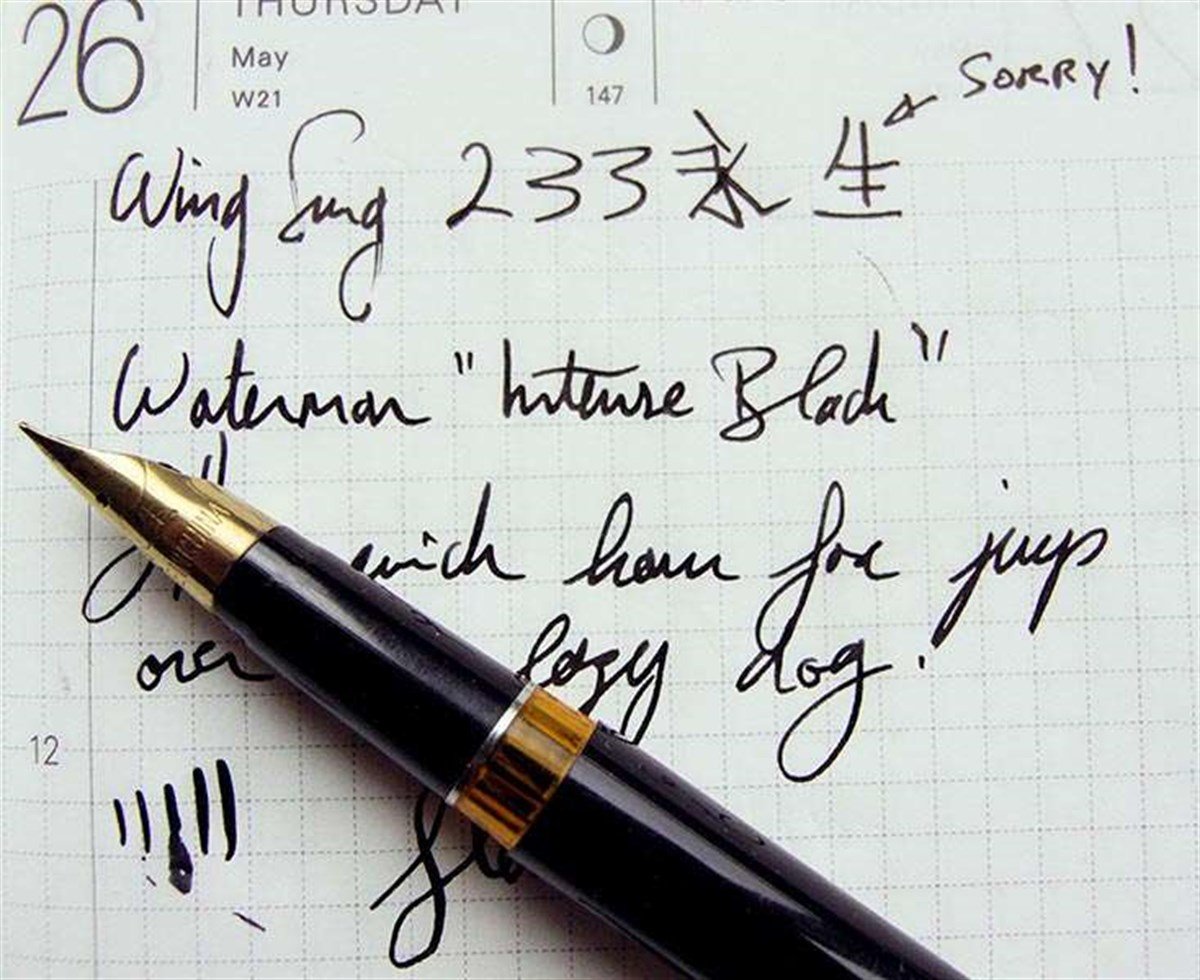 26 THURSDAY
May
W21
147
SORRY!
Wing Sung 233 永生
Waterman "Intense Black"
quick brown fox jumps
over lazy dog.
12